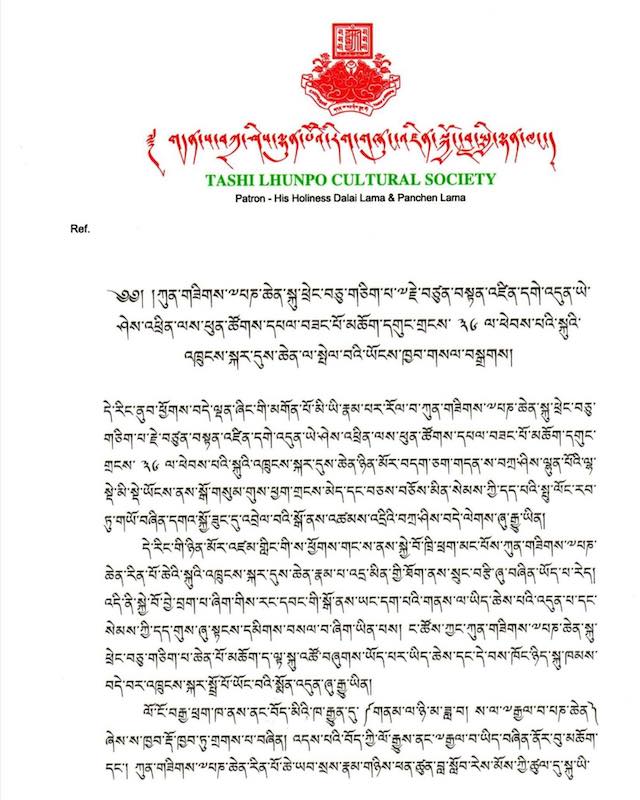 TASHI LHUNPO CULTURAL SOCIETY
Patron - His Holiness Dalai Lama & Panchen Lama
Ref.
༄༅། །ཀུན་གཟིགས་༧པཎ་ཆེན་སྐུ་ཕྲེང་བཅུ་གཅིག་པ་༧རྗེ་བཙུན་བསྟན་འཛིན་དགེ་འདུན་ཡེ་
ཤེས་འཕྲིན་ལས་ཕུན་ཚོགས་དཔལ་བཟང་པོ་མཆོག་དགུང་གྲངས་ ༣༦ ལ་ཕེབས་པའི་སྐུའི་
འཁྲུངས་སྐར་དུས་ཆེན་ལ་སྤེལ་བའི་ཡོངས་ཁྱབ་གསལ་བསྒྲགས།
དེ་རིང་ནུབ་ཕྱོགས་བདེ་ལྡན་ཞིང་གི་མགོན་པོ་མི་ཡི་རྣམ་པར་རོལ་བ་ཀུན་གཟིགས་༧པཎ་ཆེན་སྐུ་ཕྲེང་བཅུ་
གཅིག་པ་རྗེ་བཙུན་བསྟན་འཛིན་དགེ་འདུན་ཡེ་ཤེས་འཕྲིན་ལས་ཕུན་ཚོགས་དཔལ་བཟང་པོ་མཆོག་དགུང་
གྲངས་ ༣༦ ལ་ཕེབས་པའི་སྐུའི་འཁྲུངས་སྐར་དུས་ཆེན་ཉིན་མོར་བདག་ཅག་གདན་ས་བཀྲ་ཤིས་ལྷུན་པོའི་ལྷ་
སྡེ་མི་སྡེ་ཡོངས་ནས་སྒོ་གསུམ་གུས་ཕྱག་གྲངས་མེད་དང་བཅས་བཅོས་མིན་སེམས་ཀྱི་དད་པའི་སྤུ་ལོང་རབ་
ཏུ་གཡོ་བཞིན་དགའ་སྐྱོ་ཟུང་དུ་འབྲེལ་བའི་སྒོ་ནས་འཚམས་འདྲིའི་བཀྲ་ཤིས་བདེ་ལེགས་ཞུ་རྒྱུ་ཡིན།
དེ་རིང་གི་ཉིན་མོར་འཛམ་གླིང་གི་ས་ཕྱོགས་གང་ས་ནས་སྐྱེ་བོ་ཁྲི་ཕྲག་མང་པོས་ཀུན་གཟིགས་༧པཎ་
ཆེན་རིན་པོ་ཆེའི་སྐུའི་འཁྲུངས་སྐར་དུས་ཆེན་རྣམ་པ་འདྲ་མིན་གྱི་ཐོག་ནས་སྲུང་བརྩི་ཞུ་བཞིན་ཡོད་པ་རེད།
འདི་ནི་སྐྱེ་བོ་བྱེ་བྲག་པ་ཞིག་གིས་རང་དབང་གི་སྒོ་ནས་ཡང་དག་པའི་གནས་ལ་ཡིད་ཆེས་པའི་འདུན་པ་དང་
སེམས་ཀྱི་དད་གུས་ཞུ་སྟངས་དམིགས་བསལ་བ་ཞིག་ཡིན་པས། ང་ཚོས་ཀྱང་ཀུན་གཟིགས་༧པཎ་ཆེན་སྐུ་
ཕྲེང་བཅུ་གཅིག་པ་ཆེན་པོ་མཆོག་ད་ལྟ་སྐུ་འཚོ་བཞུགས་ཡོད་པར་ཡིད་ཆེས་དང་དེ་བས་ཁོང་ཉིད་སྐུ་ཁམས་
བདེ་བར་འཁྲུངས་སྐར་སྤྲོ་པོ་ཡོང་བའི་སྨོན་འདུན་ཞུ་རྒྱུ་ཡིན།
ལོ་ངོ་བརྒྱ་ཕྲག་ཁ་ནས་ནང་བོད་མིའི་ཁ་རྒྱུན་དུ་ ༼གནམ་ལ་ཉི་མ་ཟླ་བ། ས་ལ་༧རྒྱལ་བ་པཎ་ཆེན༽
ཞེས་ས་ཁྱབ་རྡོ་ཁྱབ་ཏུ་གྲགས་པ་བཞིན། འདས་པའི་བོད་ཀྱི་ལོ་རྒྱུས་ནང་༧རྒྱལ་བ་ཡིད་བཞིན་ནོར་བུ་མཆོག་
དང་། ཀུན་གཟིགས་༧པཎ་ཆེན་རིན་པོ་ཆེ་ཡབ་སྲས་རྣམ་གཉིས་ཕན་ཚུན་བླ་སློབ་རེས་མོས་ཀྱི་ཚུལ་དུ་སྐུ་ཡི་